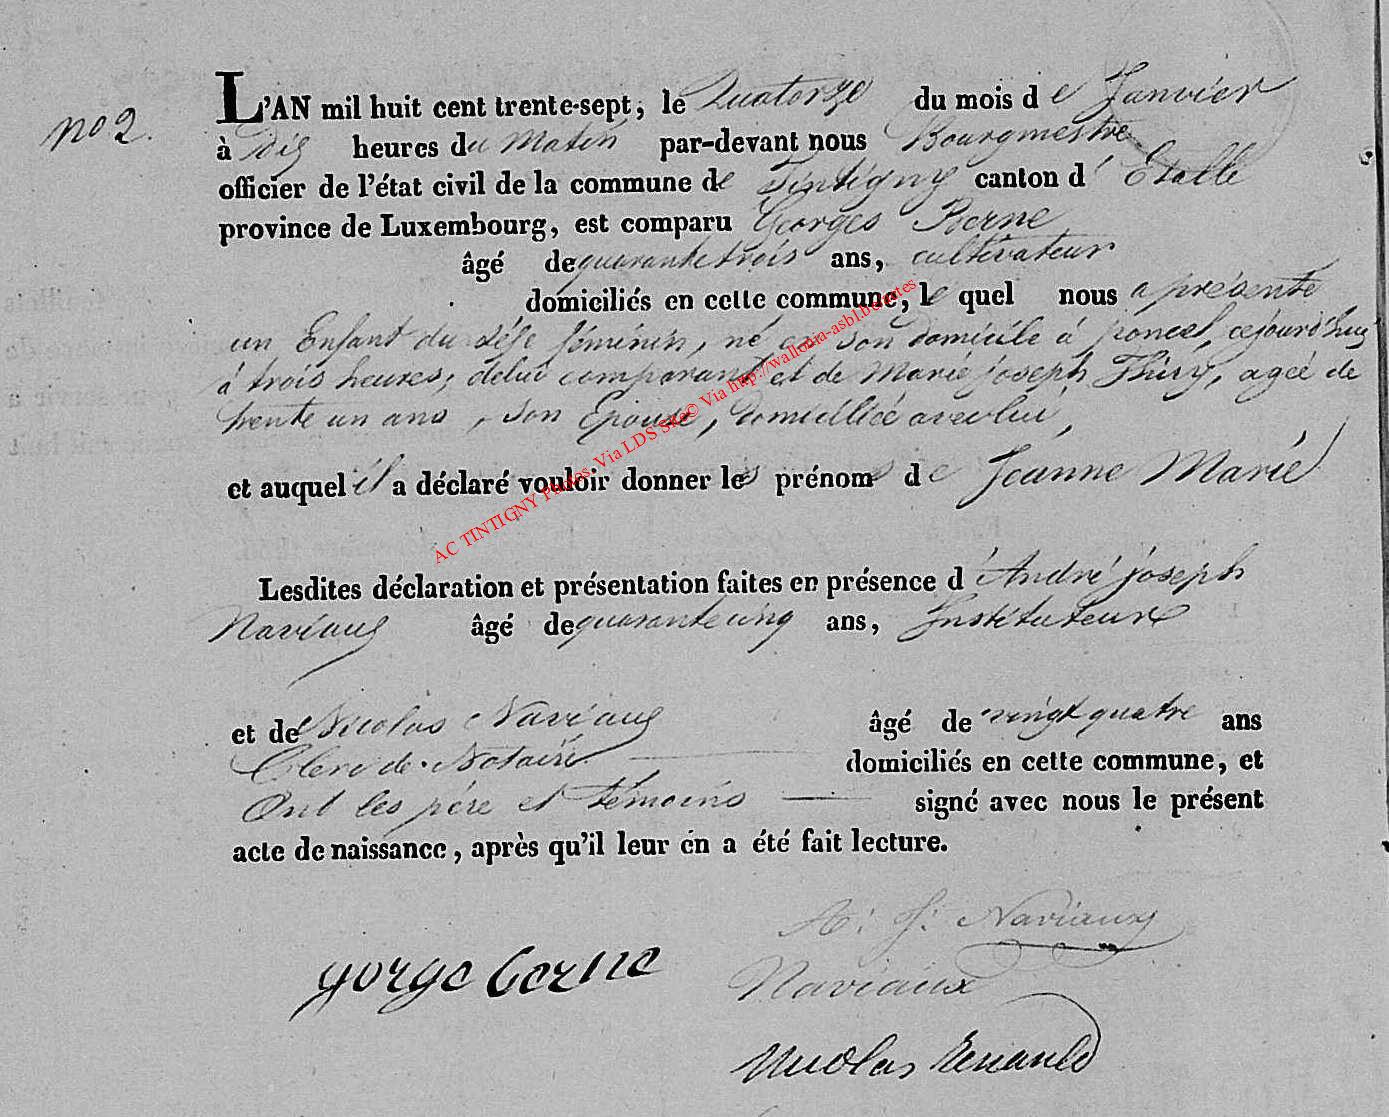 no 2.
L'AN mil huit cent trente-sept, le Quatorze du mois de Janvier
à Dix heures du Matin par-devant nous Bourgmestre
officier de l'état civil de la commune de Tintigny canton d' Etalle
province de Luxembourg, est comparu Georges Berne
âgé de quarante trois ans, cultivateur
domiciliés en cette commune, le quel nous a présenté
un Enfant du séxe féminin, né en son domicile à poncel, cejourd'huy
à trois heures, delui comparant et de Marie joseph Thiry, agée de
trente un ans, son Epouse, Domiciliée avec lui,
et auquel il a déclaré vouloir donner les prénoms de Jeanne Marie
Lesdites déclaration et présentation faites en présence d' André joseph
Naviaux âgé de quarante cinq ans, Instituteur
et de Nicolas Naviaux âgé de vingt quatre ans
Clerc de Notaire domiciliés en cette commune, et
Ont les père et témoins signé avec nous le présent
acte de naissance, après qu'il leur en a été fait lecture.
A: J: Naviaux
gorge berne
Naviaux
Nicolas Renauld
AC TINTIGNY Photos Via LDS Site© Via http://wallonia-asbl.be/actes